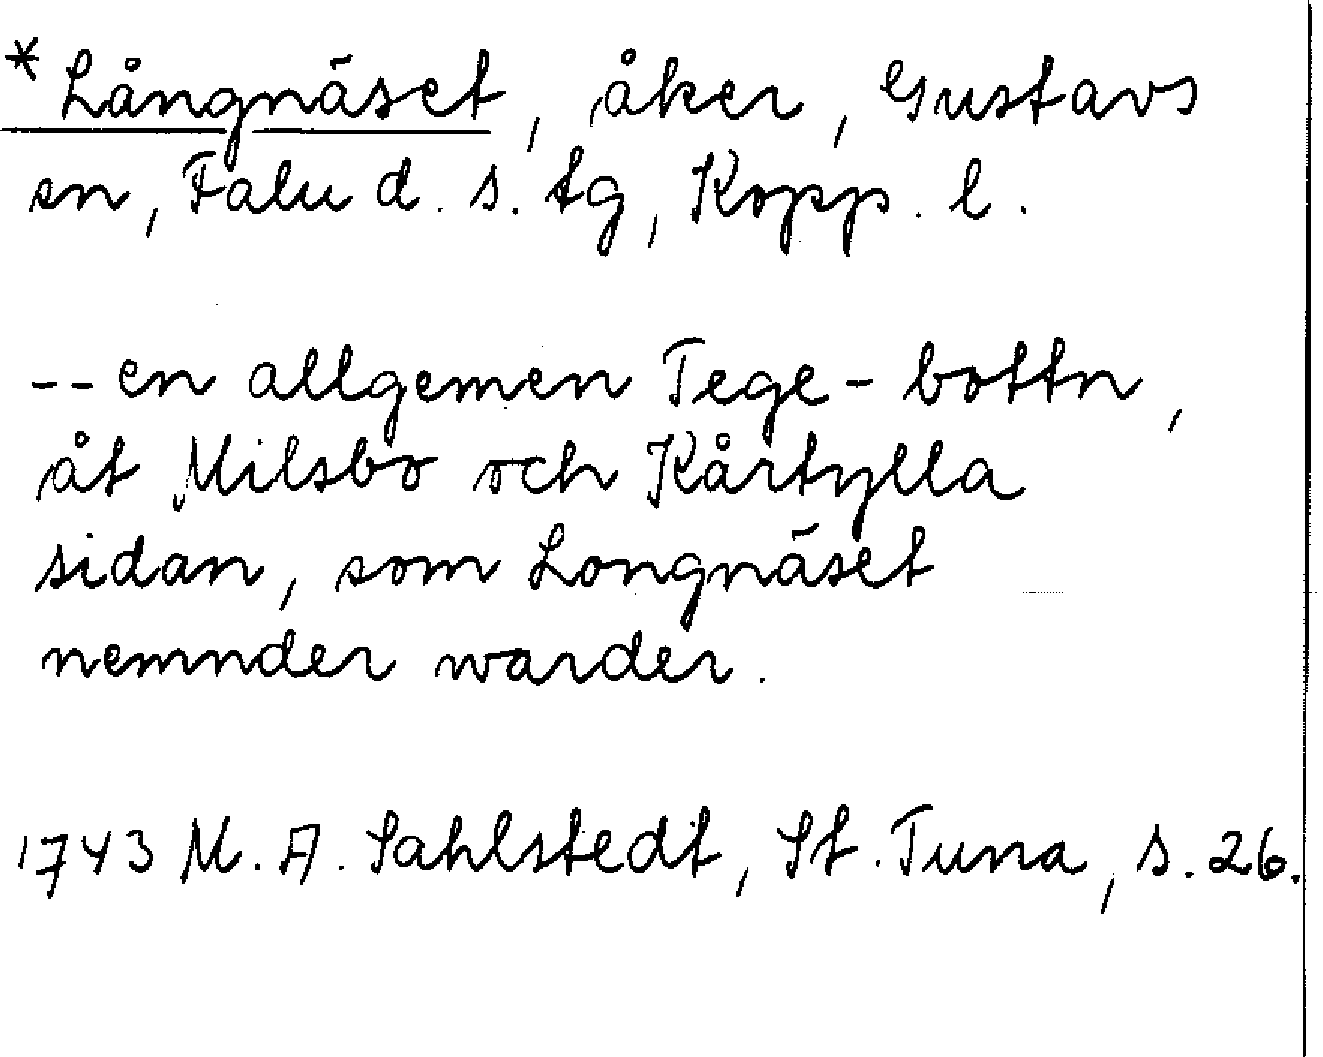 *Långnäset, åker, Gustavs
sn, Falu d. s. tg, Kopp. l.
-- en allgemen Tege-bottn,
åt Milsbo och Kårtylla
sidan, som Longnäset
nemnder warder.
1743 M. A. Sahlstedt, St. Tuna, s. 26.